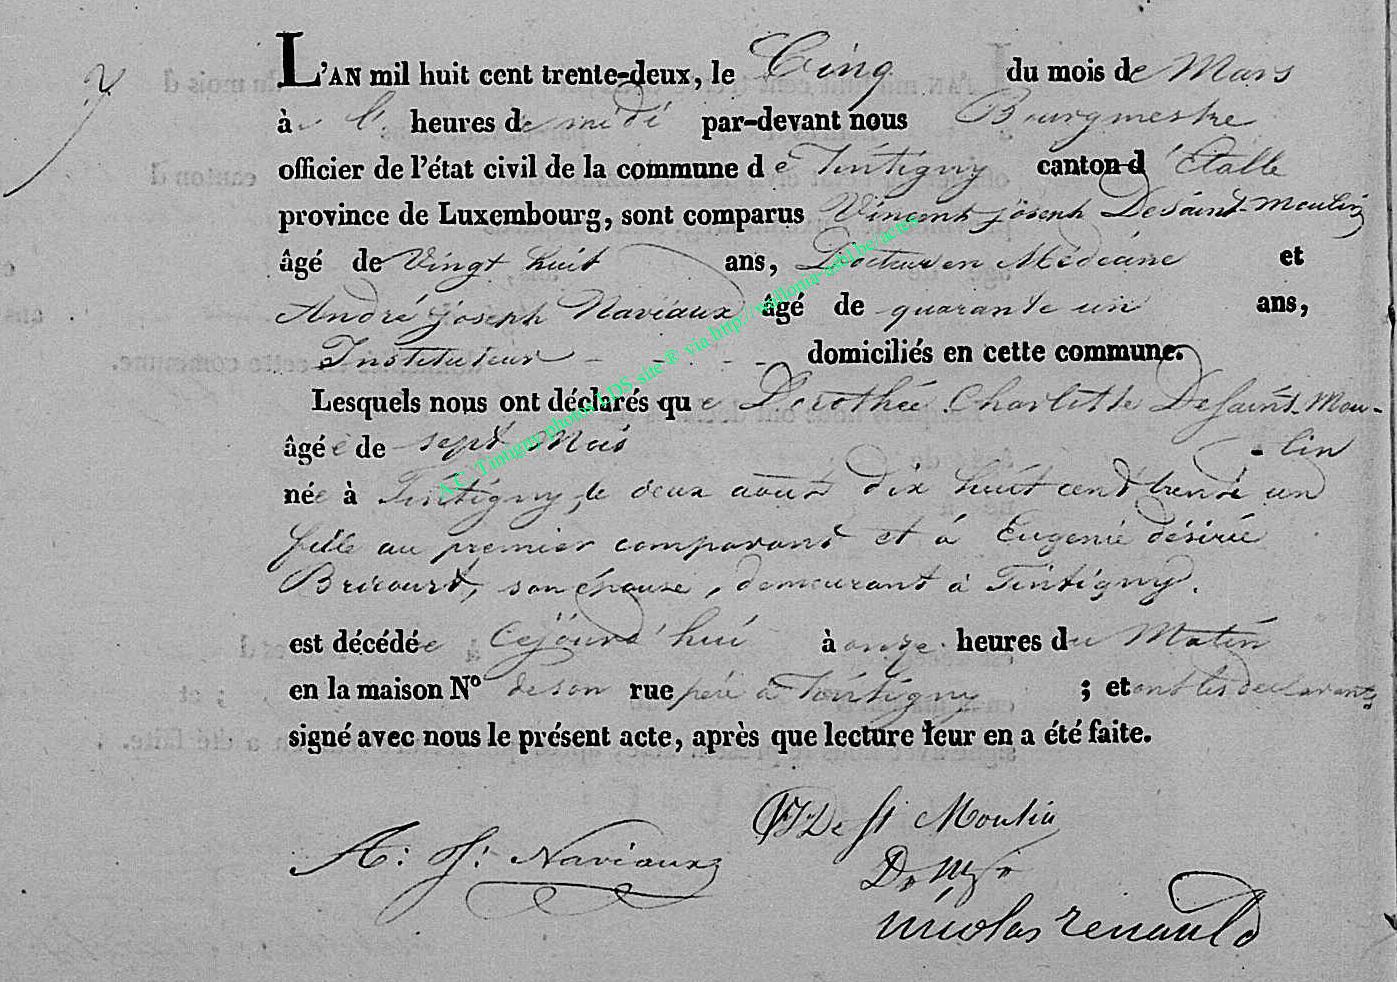 L'AN mil huit cent trente-deux, le Cinq du mois de Mars
à heures de midi par-devant nous Bourgmestre
officier de l'état civil de la commune de Tintigny canton d'Etalle
province de Luxembourg, sont comparus Vincent joseph Desaint-Moulin
âgé de Vingt huit ans, Docteur en Médecine et
André joseph Naviaux âgé de quarante un ans,
Instituteur domiciliés en cette commune.
Lesquels nous ont déclarés que Dorothée Charlotte DeSaint-Mou-
âgée de sept Mois - lin
née à Tintigny, le deux août dix huit cent trente un
fille au premier comparant et à Eugenie désirée
Bricourt, son épouse, demeurant à Tintigny.
est décédée Cejourd'hui à onze heures du Matin
en la maison No de son rue père à Tintigny ; et ont les declarants
signé avec nous le présent acte, après que lecture leur en a été faite.
VJ De St Moulin
A: J: Naviaux
nicolas renauld
A.C. Tintigny photos LDS site ® via http://wallonia-asbl.be/actes